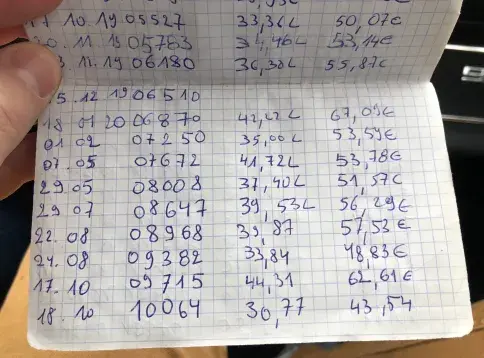 17 10 19 05527 33,36L 50,07€
20.11.19 05783 34,46L 53,14€
12.19 06180 36,38L 55,87€
15.12 19 06510
18 01 20 06870 42,22L 67,09€
01 02 07250 35,00L 53,59€
07.05 07672 41,72L 53,78€
29 05 08008 37,40L 51,57€
29 07 08647 39,53L 56,29€
22.08 08968 39,87 57,53€
24.08 09382 33,84 48,83€
17.10 09715 44,31 62,61€
18.10 10064 30,77 43,54